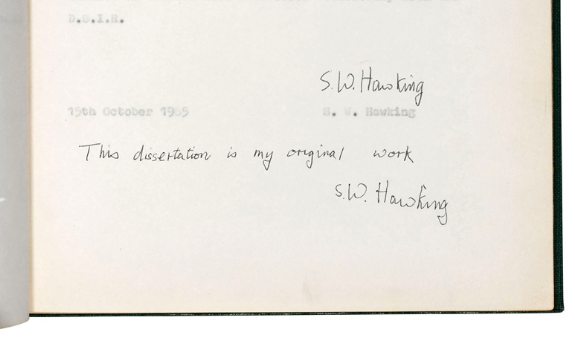 D.S.I.R.
S.W. Hawking
15th October 1965 S. W. Hawking
This dissertation is my original work
S.W. Hawking